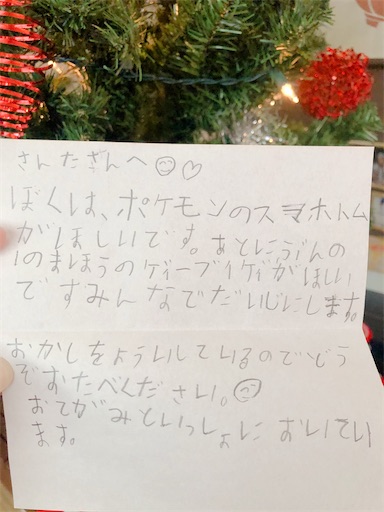 さんたさんへ☺♡
ぼくは、ポケモンのスマホトム
がほしいです。あとにぶんの
1のまほうのディーブイディがほしい
ですみんなでだいじにします。
おかしをよういしているのでどう
ぞすたべください。☺
おてがみといっしょにおいてい
ます。